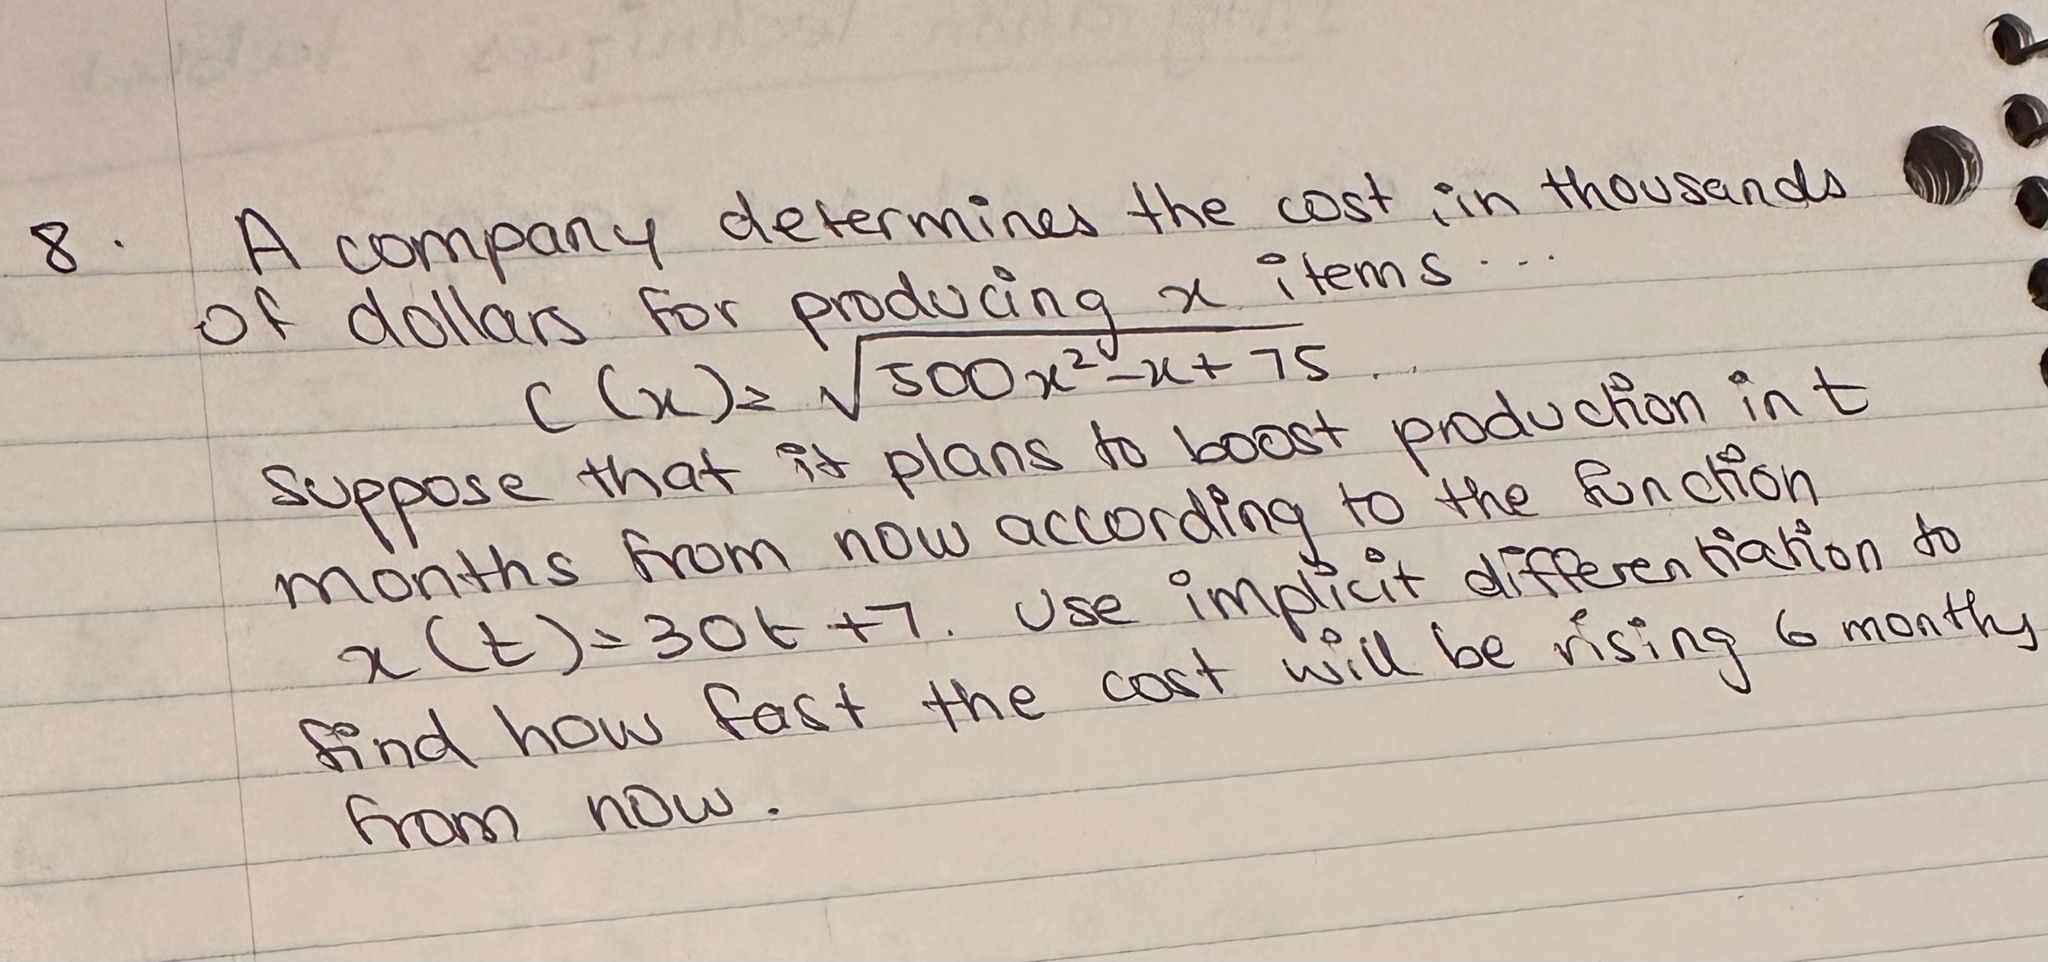 8. A company determines the cost, in thousands
of dollars for producing x items...
C(x)= √500x²-x+75...
Suppose that it plans to boost production in t
months from now according to the function
x(t)=30t+7. Use implicit differentiation to
find how fast the cost will be rising 6 months
from now.